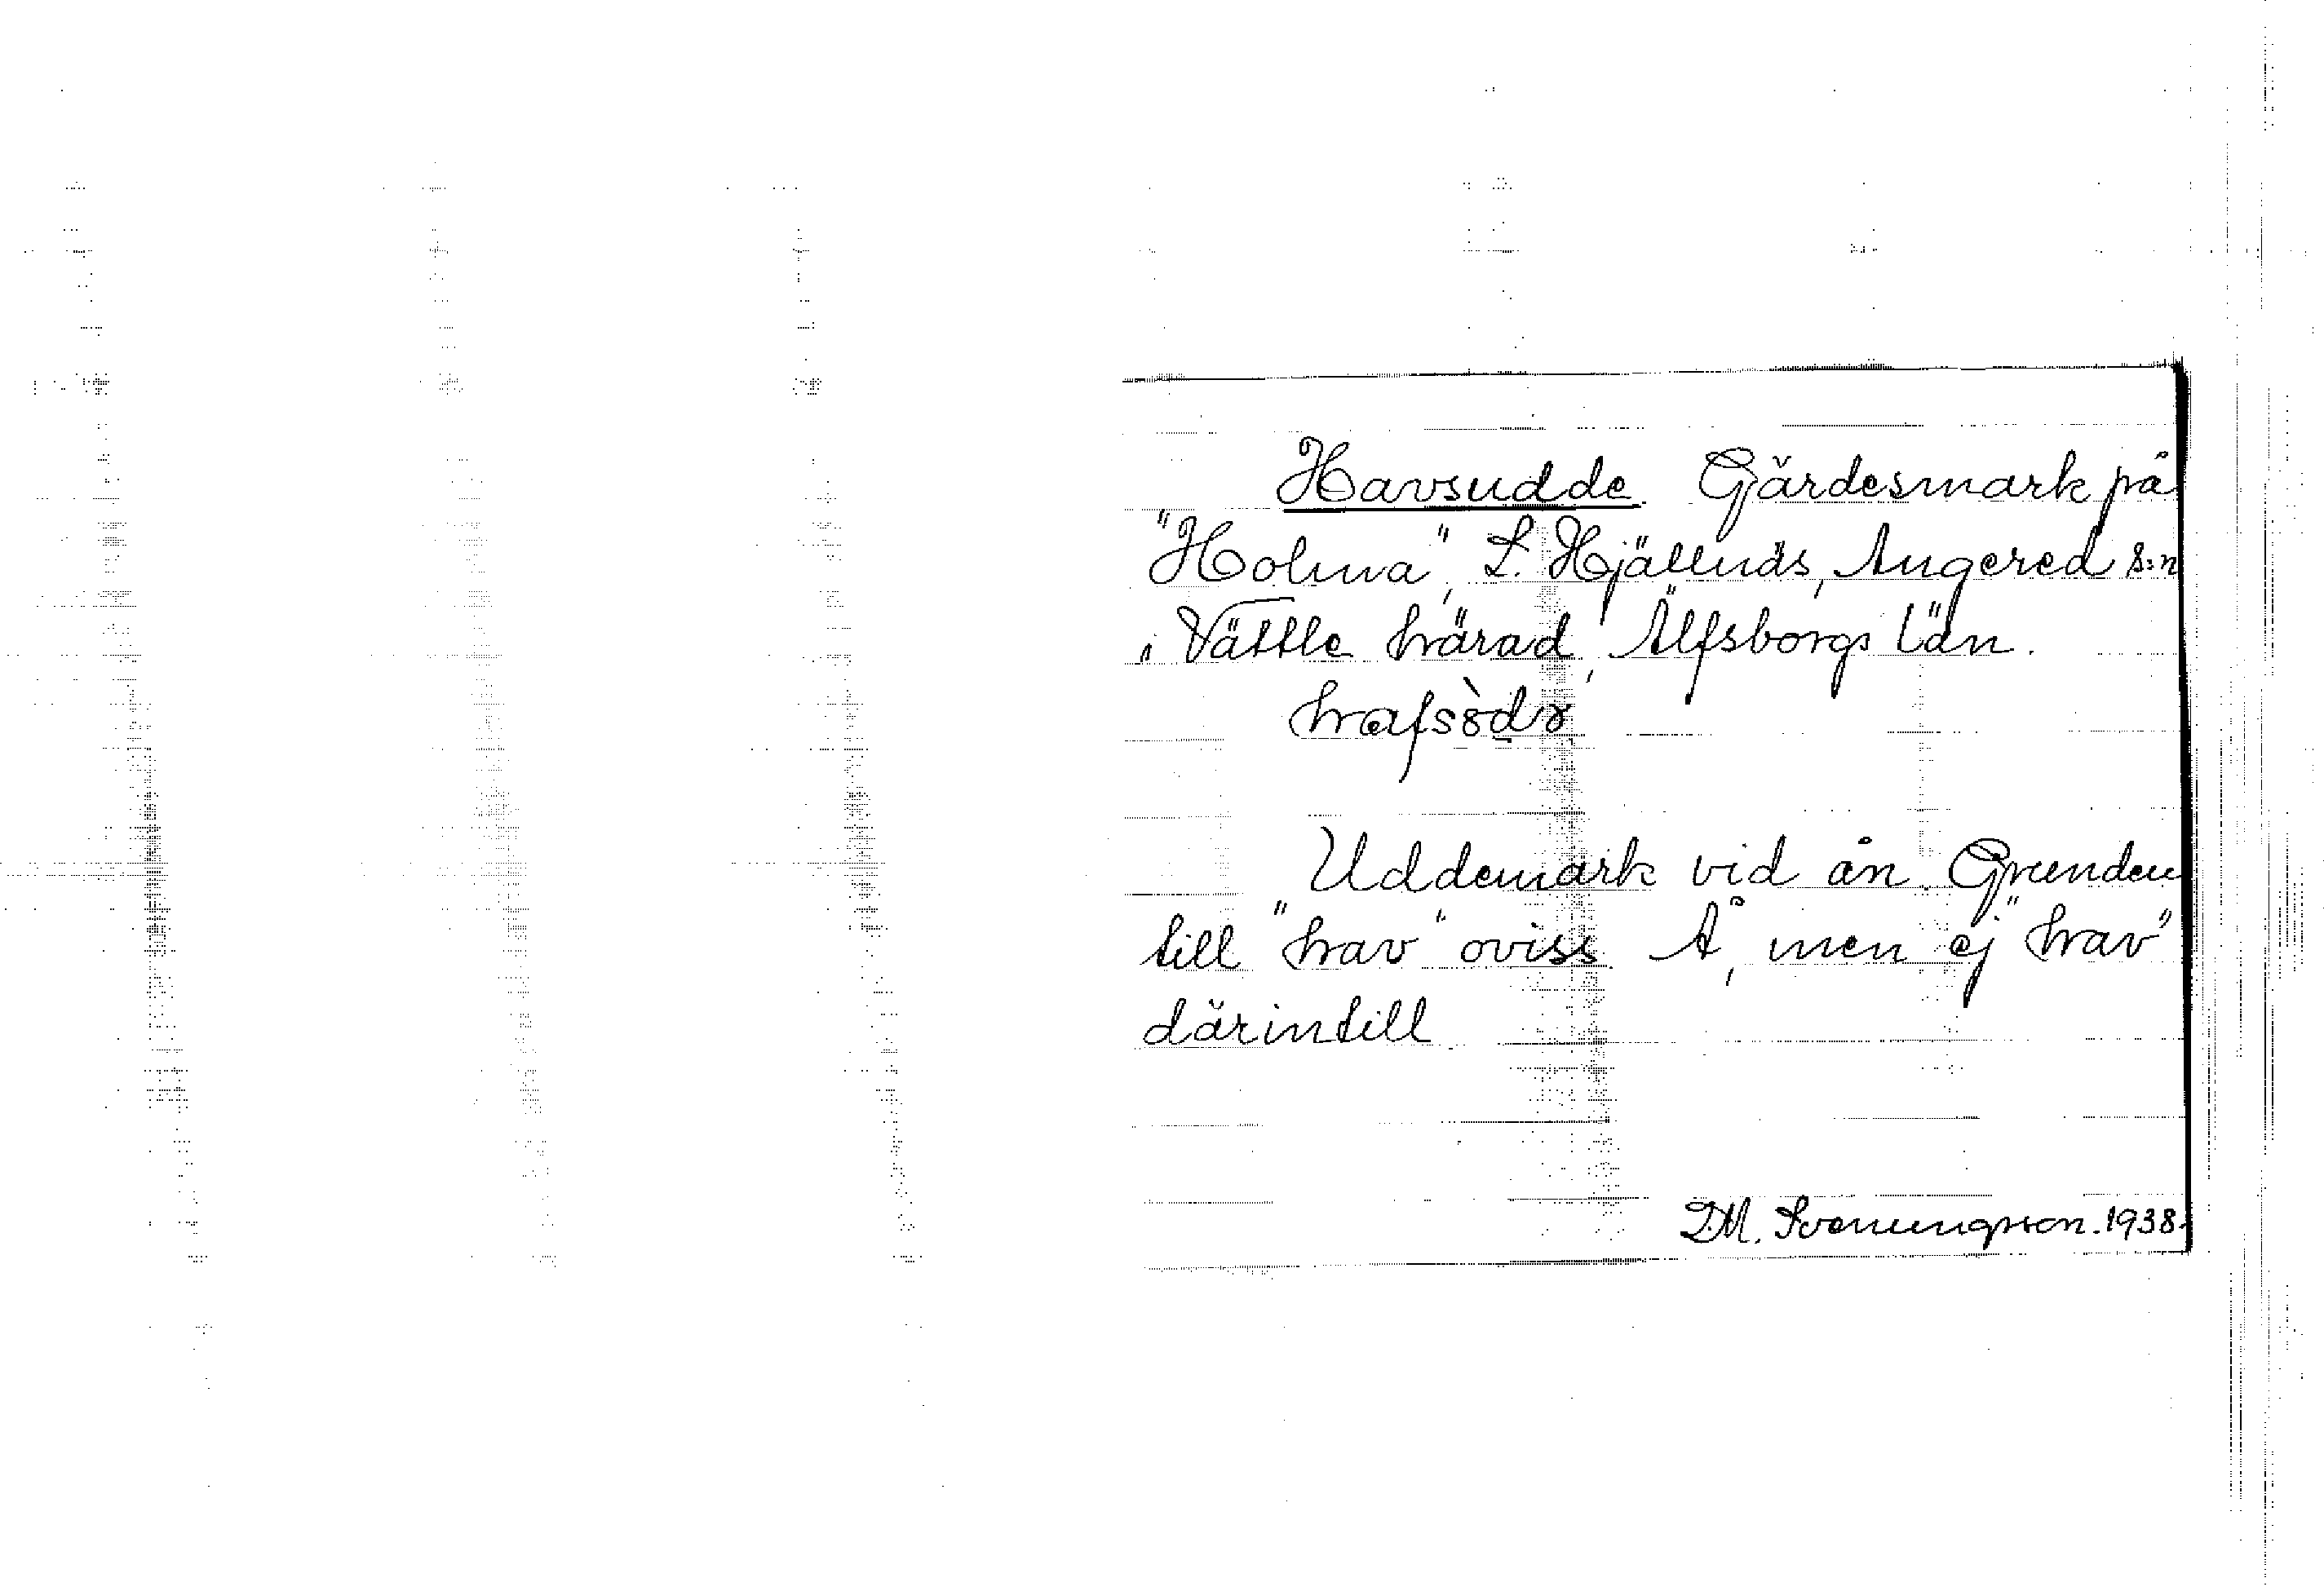 Havsudde. Gärdesmark på
"Holma", L. Hjällnäs, Angered s:n
i Vättle härad, Älfsborgs län.
hafsòdә
Uddemark vid ån. Grunden
till "hav" oviss. Å, men ej "hav"
därintill
D.M. Svenungsson. 1938.